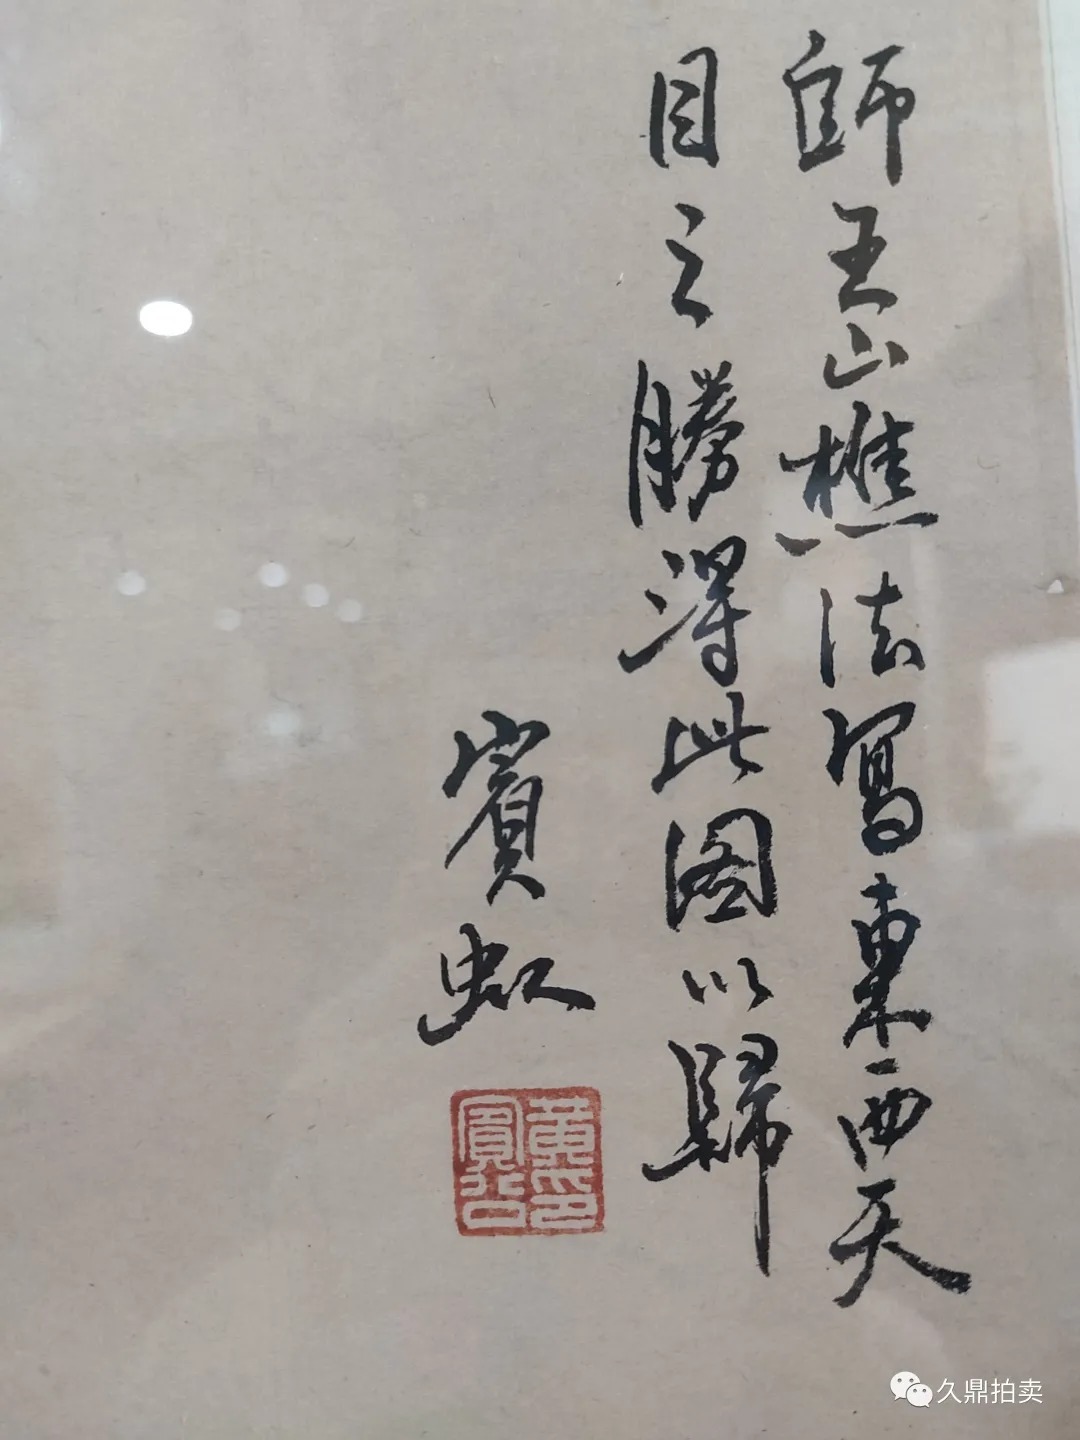 師王山樵法寫東西天
目之勝得此圖以歸
賓虹
黃賓公印
久鼎拍卖